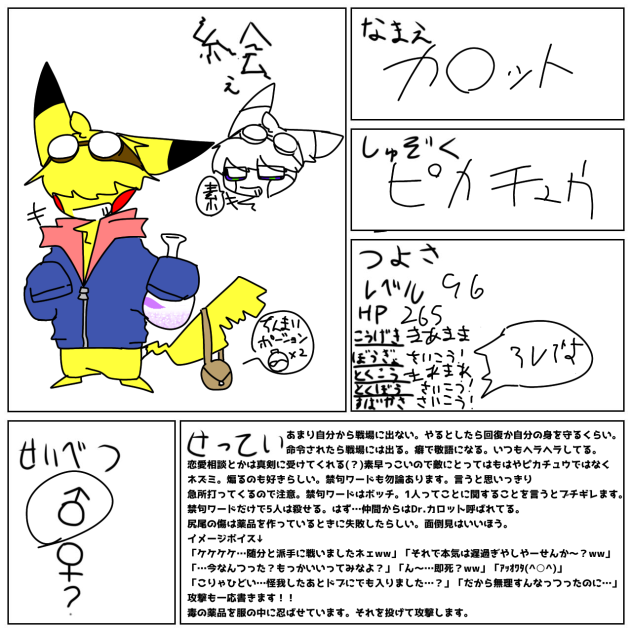 絵
え
素
キ
キ
でんせい
ポーション
×2
なまえ
カロット
しゅぞく
ピカチュウ
つよさ
レベル 96
HP 265
こうげき きあまま
ぼうぎょ さいこう!
とくこう きれまれ
とくぼう さいこう!
すばやさ さいこう!
せいべつ
♂
♀
?
せってい
あまり自分から戦場に出ない。やるとしたら回復か自分の身を守るくらい。
命令されたら戦場には出る。癖で敬語になる。いつもヘラヘラしてる。
恋愛相談とかは真剣に受けてくれる(?)素早っこいので敵にとってはもはやピカチュウではなく
ネズミ。煽るのも好きらしい。禁句ワードも勿論あります。言うと思いっきり
急所打ってくるので注意。禁句ワードはボッチ。1人ってことに関することを言うとブチギレます。
禁句ワードだけで5人は殺せる。はず…仲間からはDr.カロット呼ばれてる。
尻尾の傷は薬品を作っているときに失敗したらしい。面倒見はいいほう。
イメージボイス↓
「ケケケケ…随分と派手に戦いましたネェww」「それで本気は遅過ぎやしやーせんか〜?ww」
「…今なんつった?もっかいいってみなよ?」「ん〜…即死?ww」「ｱｯｫｵﾜﾀ(^○^)」
「こりゃひどい…怪我したあとドブにでも入りました…?」「だから無理すんなっつったのに…」
攻撃も一応書きます!!
毒の薬品を服の中に忍ばせています。それを投げて攻撃します。